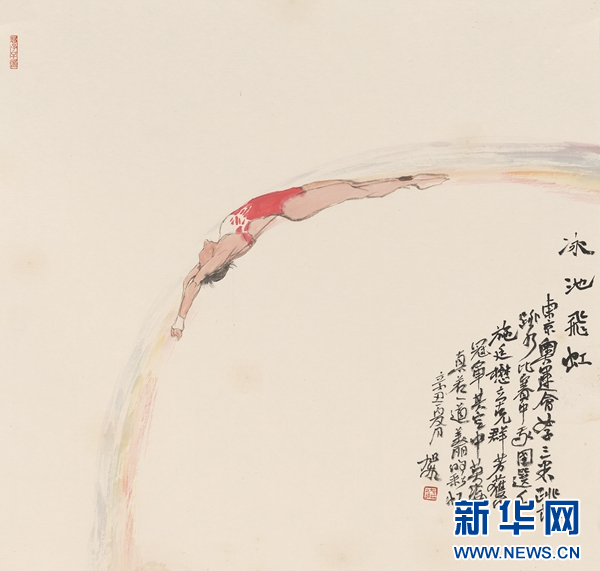 泳池飛虹
東京奧運會女子三米跳板
跳水比賽中我國選手
施廷懋立克群芳獲
冠軍其空中英姿
真若一道美麗的彩虹
辛丑夏月
新华网
WWW.NEWS.CN